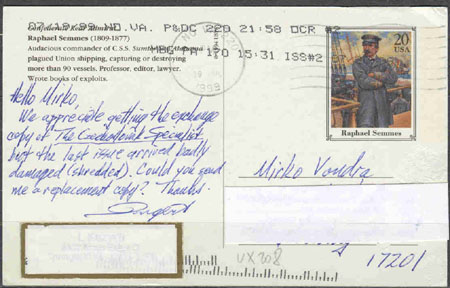 07-19-99 NO.VA. P&DC 220 21:58 OCR #2
Confederate Rear Admiral
Raphael Semmes (1809-1877)
Audacious commander of C.S.S. Sumter
plagued Union shipping, capturing or destroying
more than 90 vessels. Professor, editor, lawyer.
Wrote books of exploits.
HBG PA 170 15:31 ISS#2 07
1999
20
USA
Raphael Semmes
Hello Mirko,
We appreciate getting the exchange
copy of The Czechoslovak Specialist
but the last issue arrived badly
damaged (shredded). Could you send
me a replacement copy? Thanks.
Mirko Vondra
17201
UX308